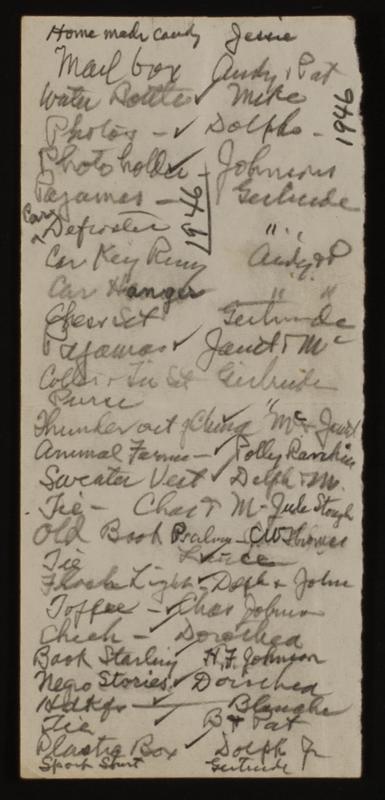 Home made candy Jessie
Mail box Andy & Pat
Water Bottle ✓ Mike
1946
Photos - ✓ Dolph -
Photo holder - Johnsons
Pajamas - Gertrude
1946
Car Defroster " "
Car Key Ring Andy & P
Car Hanger " "
Chess Set Gertrude
Pajamas ✓ Janet & Mc
Collar & Tie Set Gertrude
Purse
Thunder out of China ✓ "Mc & Janet
Animal Farm - ✓ Polly Rankin
Sweater Vest ✓ Dolph & M.
Tie - Chas & M - Jule Stough
Old Book Psalms - CW Thomes
Tie Lance
Flash Light ✓ Dolph & John
Toffee - ✓ Chas Johnson
Check - ✓ Dorothea
Book Starling ✓ H.F. Johnson
Negro Stories ✓ Dorothea
Hdkfs - Blanche
Tie ✓ B & Pat
Plastic Box ✓ Dolph Jr
Sport Shirt Gertrude